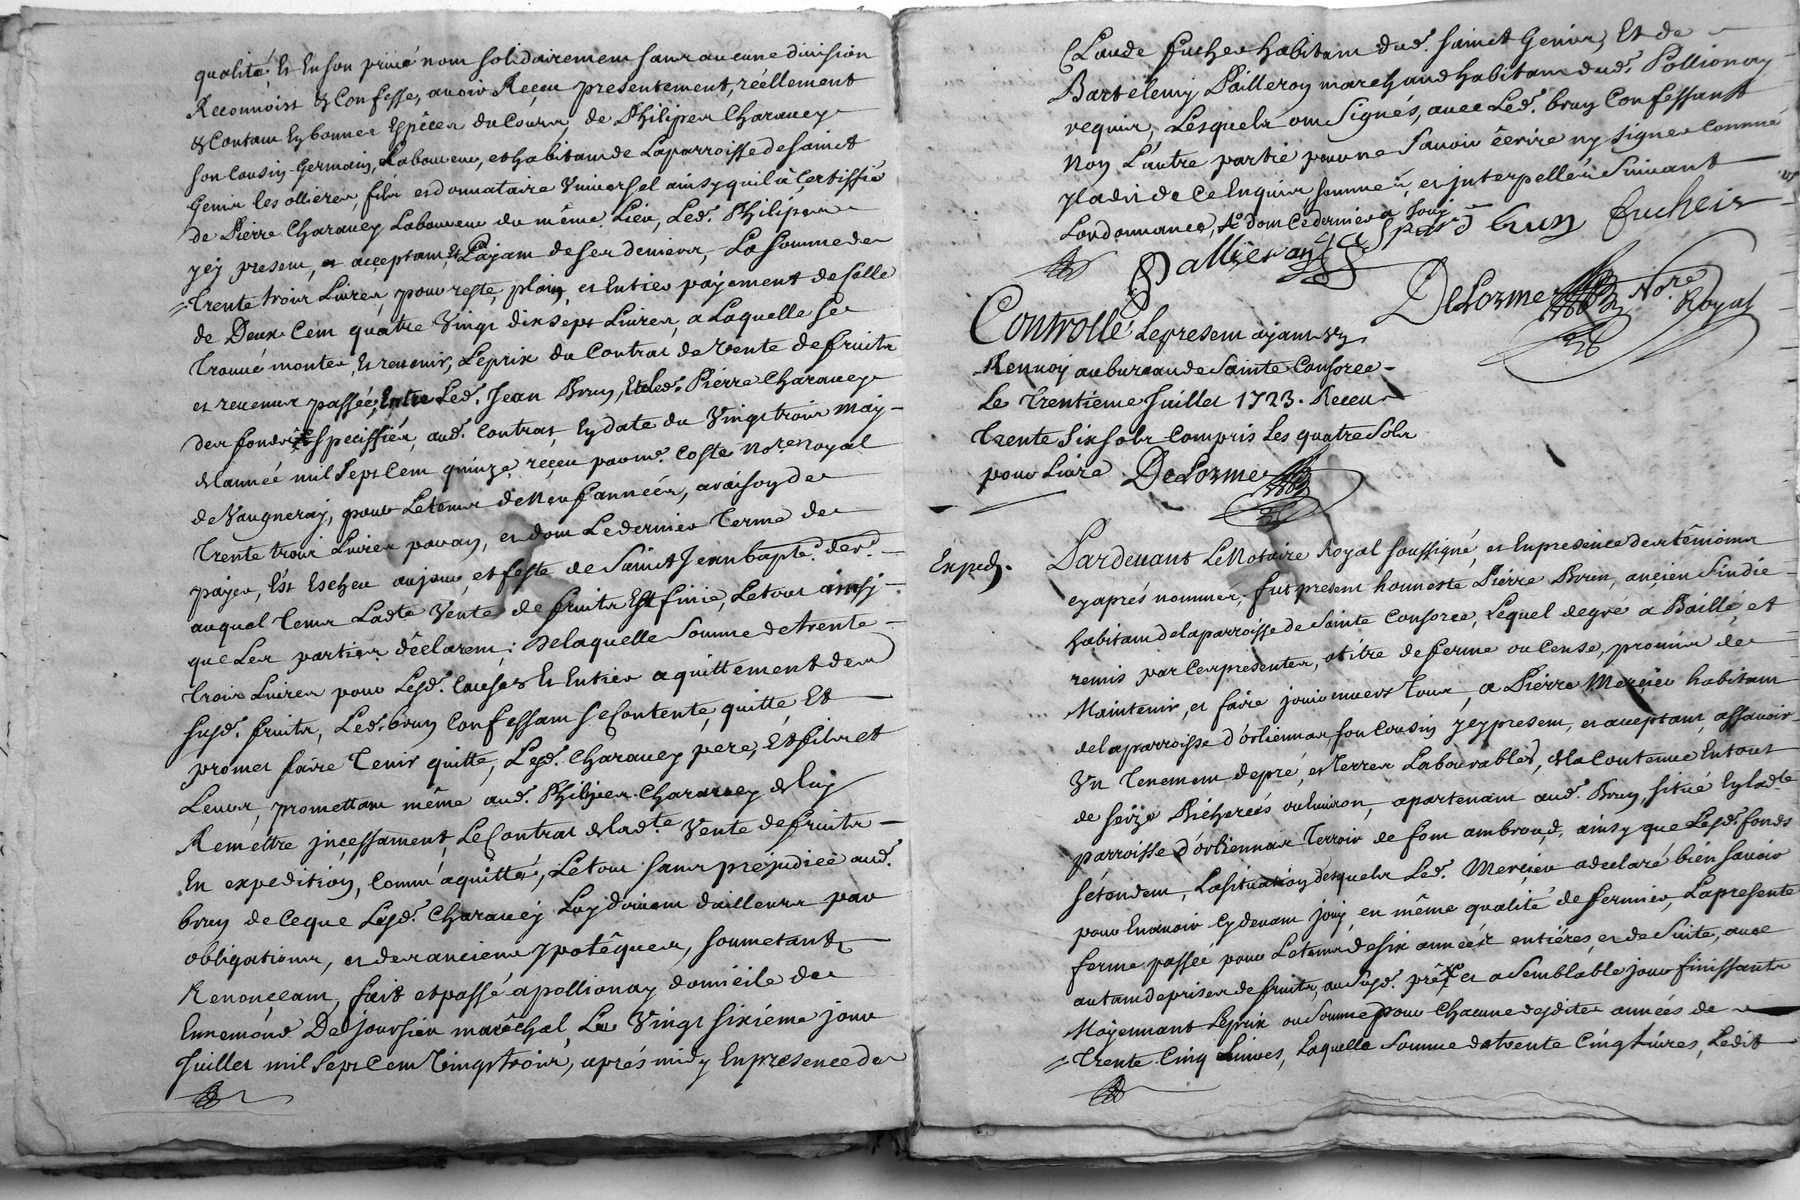 qualité, et en son privé nom solidairement sans aucune division
Reconnoist & Confesse, avoir Reçeu presentement, réellement
& Contant En bonnes Espèces du Cours, de Philiper Charavey
son Cousin Germain, Laboureur, et habitant de La parroisse de Sainct
Genis les ollieres, fils et donnataire Universel ainsy qu'il à Certiffié
de Pierre Charavey Laboureur du même Lieu, Led. Philiper
yçy present, et acceptant, et Payant de ses deniers, La Somme de
Trente trois Livres, pour reste, plain, et Entier payement de Celle
de Deux Cent quatre Vingt dix sept Livres, a Laquelle Se
Trouve monter, Et revenir, Le prix du Contrat de Vente de fruits
et revenus passée, Entre Led. Jean Brun, Et Led. Pierre Charavey
des fonds Speciffiés, aud. Contrat, En date du Vingt trois may
de l'année mil Sept Cent quinze, reçeu par me. Coste No.re royal
de Vaugneray, pour Le tems de Neuf années, a raison de
Trente trois Livres par an, et dont Le dernier Terme de
payer, Est Escheu au jour, et feste de Saint Jean bapt.e der.
auquel Tems Lad.te Vente de fruits Est finie, Le tout ainsy
que Les parties déclarent; De laquelle Somme de trente
Trois Livres pour Lesd. Causes Et Entier aquittement des
susd. fruits, Led. brun Confessant Se Contente, quitte, Et
promet faire Tenir quitte, Lesd. Charavey pere, Et fils et
Leurs, promettant même aud. Philiper Charavey de luy
Remettre jnçessament, Le Contrat de lad.te Vente de fruits
En expedition, Comm'aquitté, Le tout sans prejudice aud.
brun de Ce que Lesd. Charavey Luy doivent d'ailleurs par
obligations, et des anciens ypotêques, soumetant
Renonceant, fait et passé a pollionay domicile de
Ennemond Dejoursieu maréchal, Le Vingt sixiéme jour
Juillet mil Sept Cent Vingt trois, aprés midy En presence de
Claude fucher habitant dud. sainct Genis, Et de
Bartelemy Pailleron marchand habitant dud. Pollionay
requis, Lesquels ont Signés, avec Led. brun Confessant
Non L'autre partie pour ne Savoir écrire ny signer Comme
yladit de Ce Enquis sommés, et jnterpellés Suivant
Lordonnance,
brun fucheir
Delorme No.re Royal
Controllé Le present ayant Un
Renvoy au bureau de Sainte Consorce
Le Trentieme Juillet 1723. Receu
Trente Six Sols Compris Les quatre Sols
pour Livre Delorme
Exped. Pardevant Le Notaire Royal soussigné, et En presence des têmoins
cy aprés nommés, fut present honneste Pierre Brun, ançien Sindic
habitant de la parroisse de Sainte Consorce, Lequel de gré a Baillé, et
remis par Ces presentes, atitre de ferme ou Cense, promis de
Maintenir, et faire jouir envers Tous, a Pierre Merçier habitant
de la parroisse d'orliennas, son Cousin yçy present, et acceptant, assavoir
Un Tenement de pré, et Terres Labourables, de la Contenue En tout
de seize Bicherées ou Environ, apartenant aud. Brun, situé En lad.te
parroisse d'orliennas Terroir de font ambroud, ainsy que Lesd. fonds
sétendent, La situation desquels Led. Merçier a declaré bien Savoir
pour En avoir Cy devant jouy en même qualité de fermier, La presente
ferme passée pour Le tems de six années entiéres, et de Suite, avec
autant de prises de fruits, au susd. et a Semblable jour finissants
Moyennant Le prix ou Somme pour Chacune desdites années de
Trente Cinq Livres, Laquelle Somme de trente Cinq Livres, Ledit